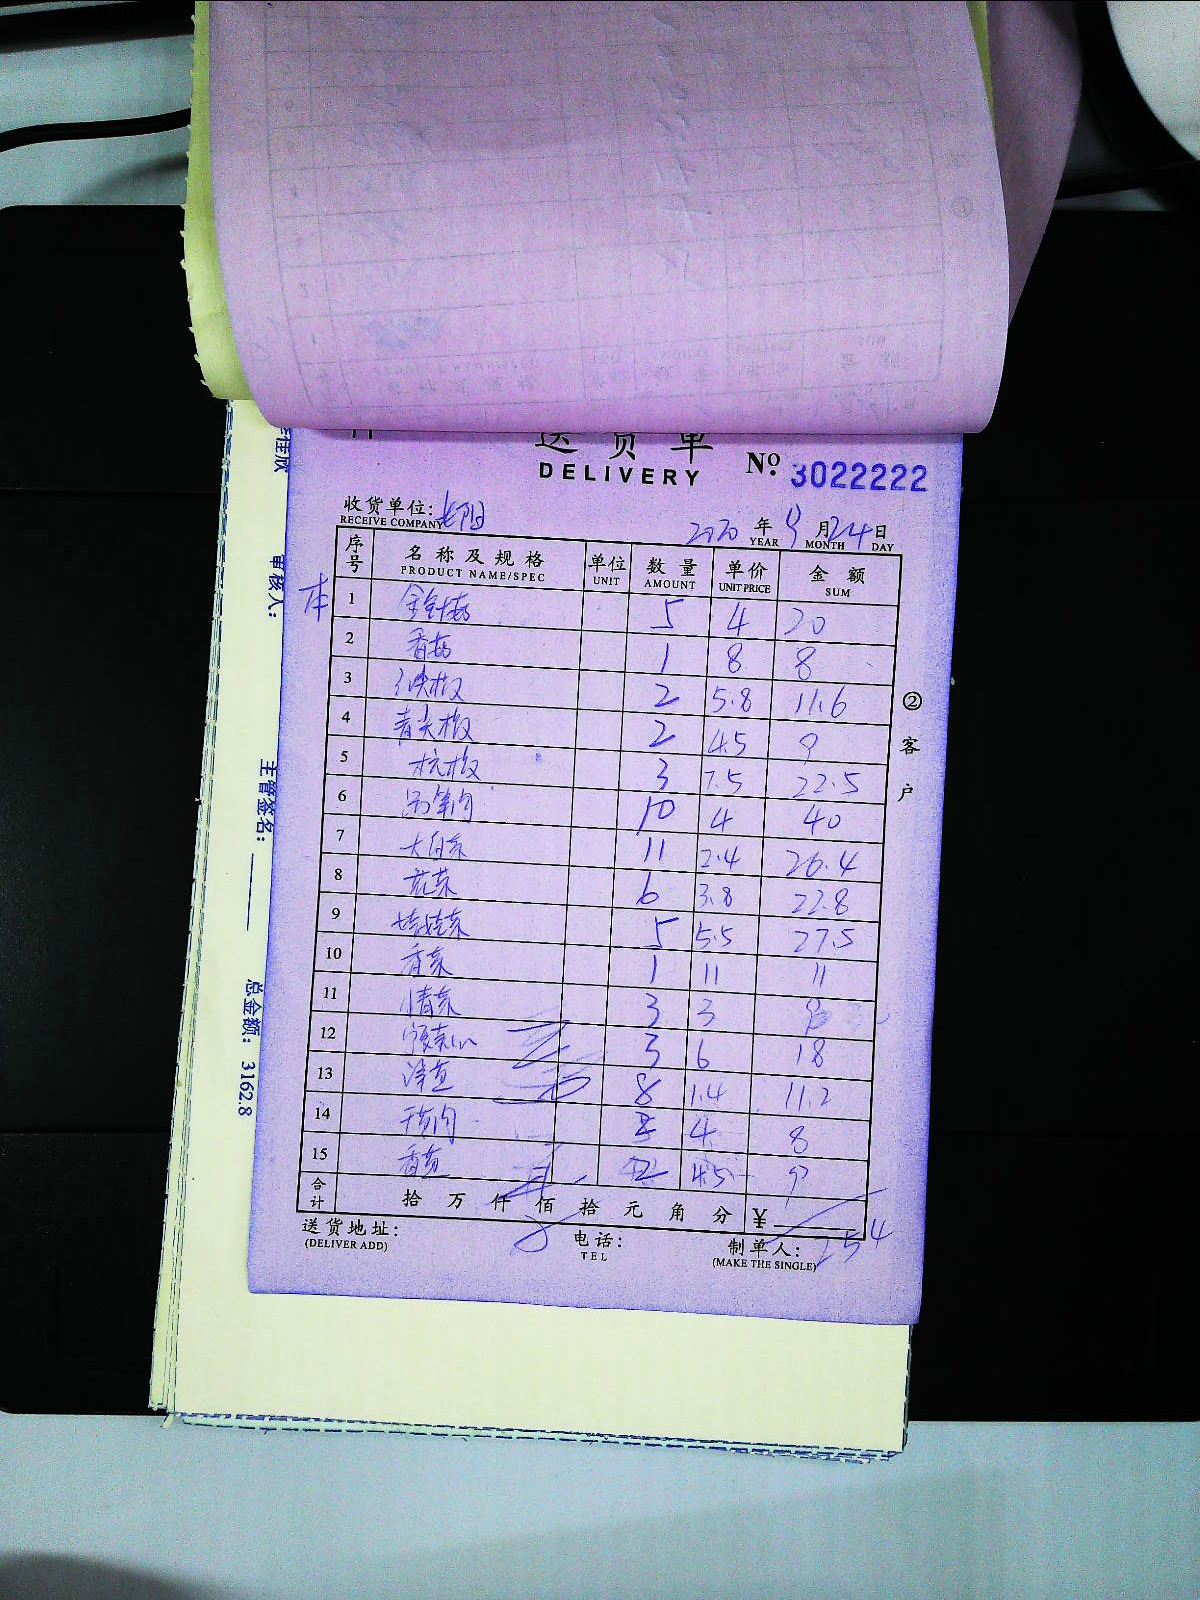 送货单
DELIVERY
№ 3022222
收货单位:
RECEIVE COMPANY
2020 年 9 月 24 日
YEAR MONTH DAY
序号 名称及规格 单位 数量 单价 金额
PRODUCT NAME/SPEC UNIT AMOUNT UNIT PRICE SUM
本
1 金针菇 5 4 20
2 香菇 1 8 8
3 尖椒 2 5.8 11.6
4 青尖椒 2 4.5 9
5 杭椒 3 7.5 22.5
6 10 4 40
7 大白菜 11 2.4 26.4
8 花菜 6 3.8 22.8
9 娃娃菜 5 5.5 27.5
10 香菜 1 11 11
11 小青菜 3 3 9
12 3 6 18
13 8 1.4 11.2
14 2 4 8
15 2 4.5 9
合计 拾 万 仟 佰 拾 元 角 分 ¥
254
送货地址:
(DELIVER ADD)
电话:
TEL
制单人:
(MAKE THE SINGLE)
②客户
审核人:
主管签名:
总金额: 3162.8